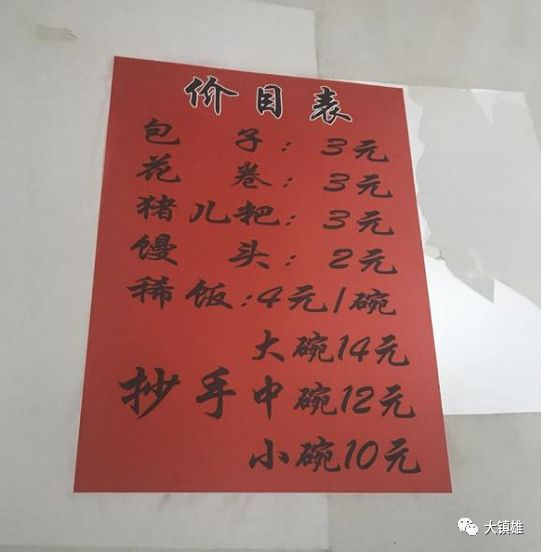 价目表
包子：3元
花卷：3元
猪儿粑：3元
馒头：2元
稀饭：4元/碗
大碗14元
抄手中碗12元
小碗10元
大镇雄